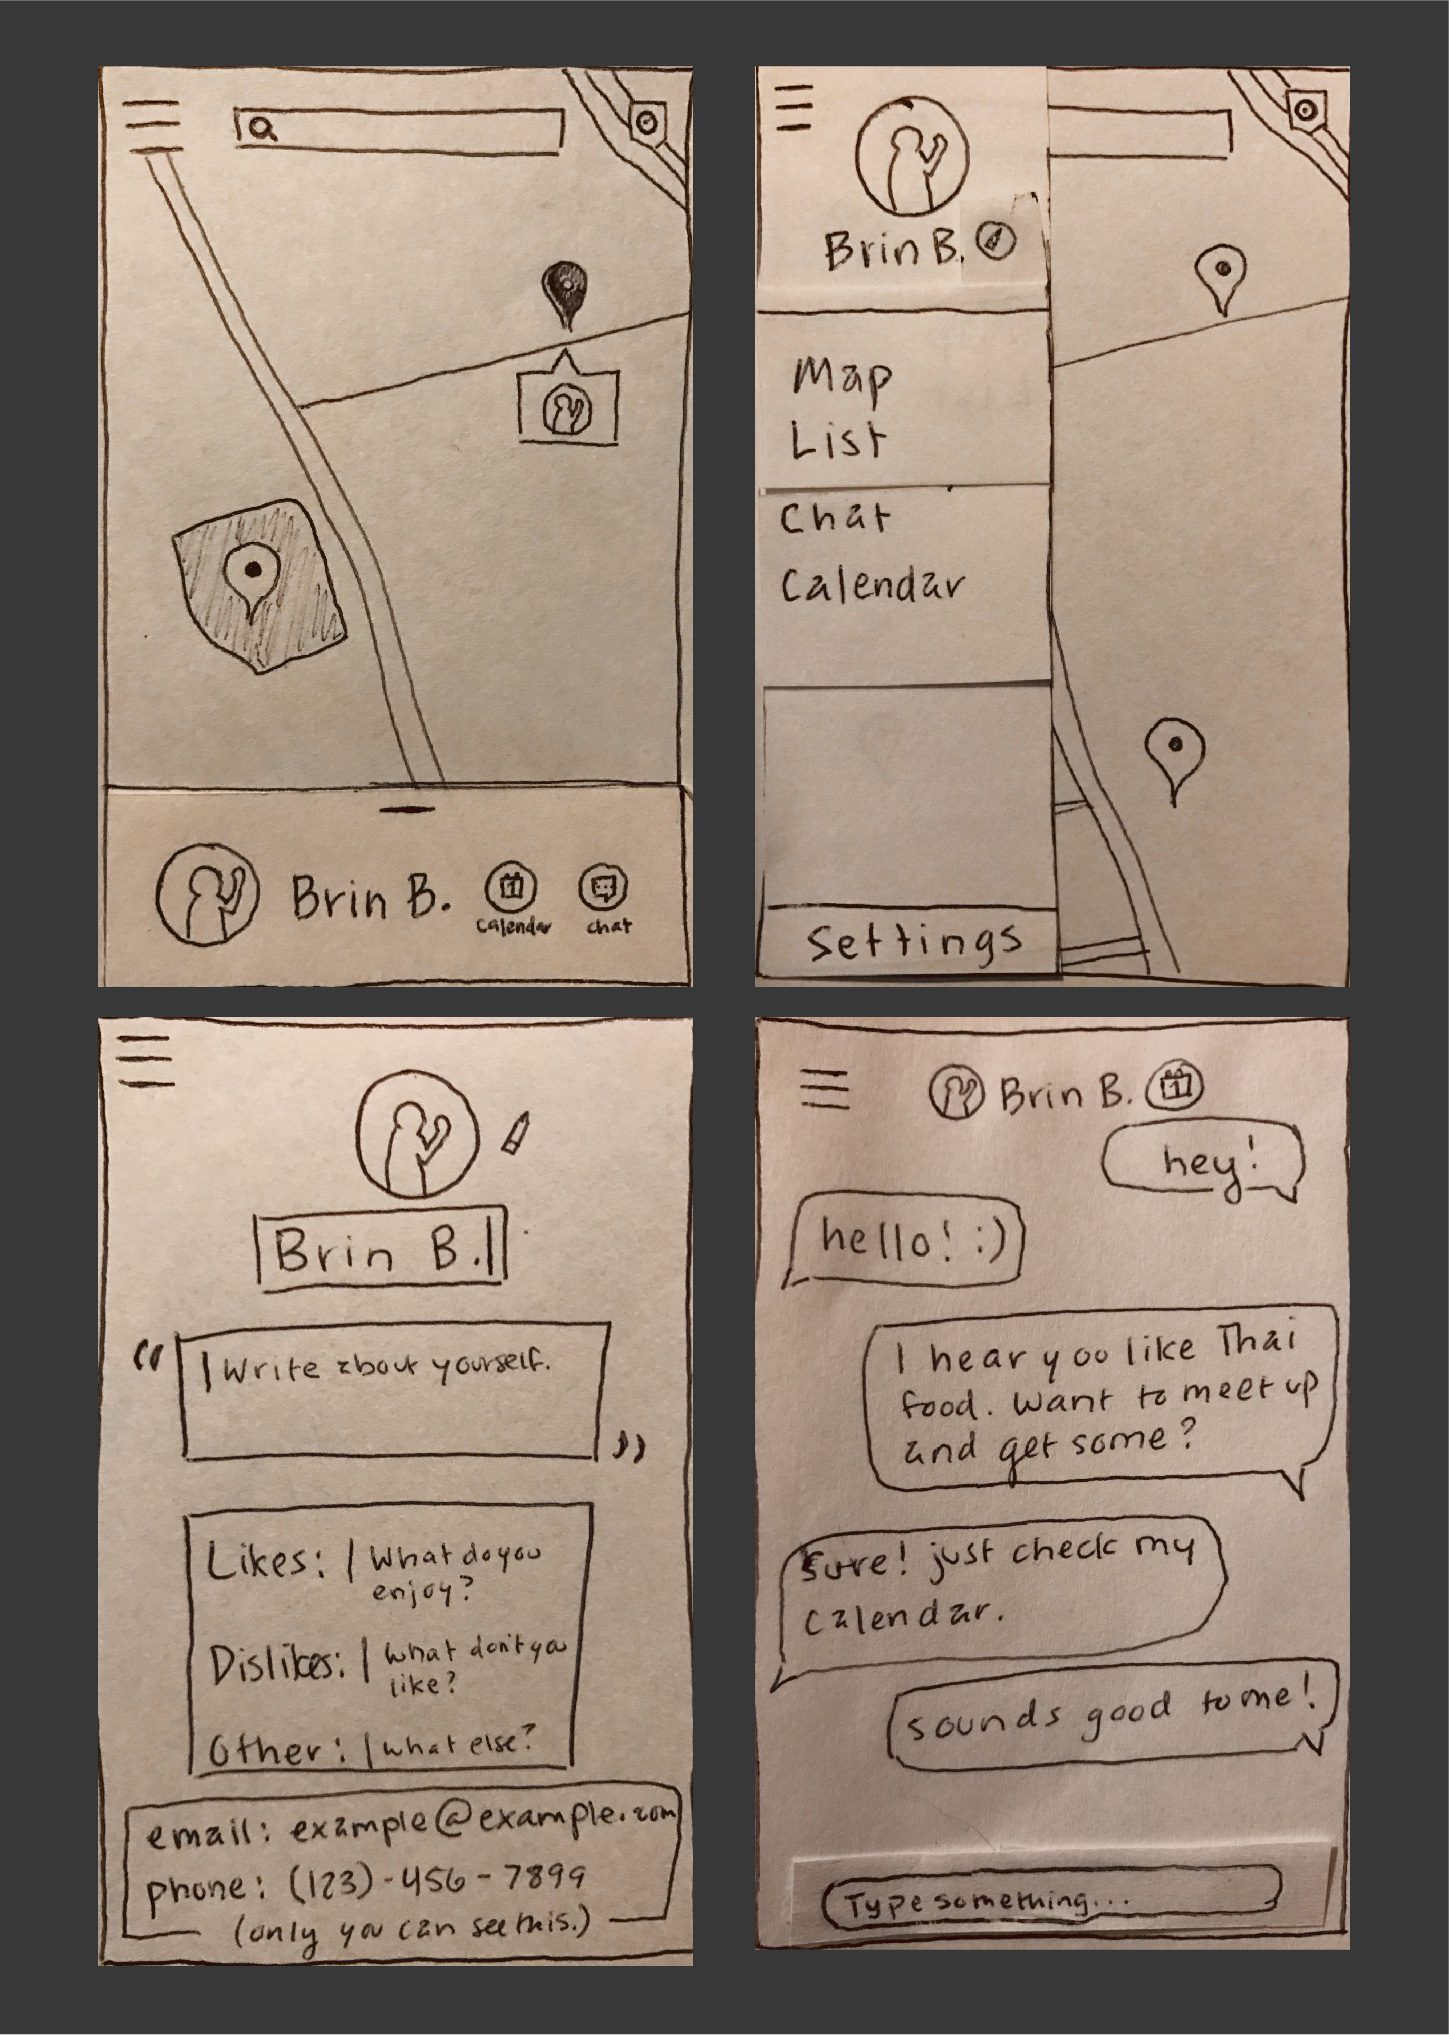 Brin B.
calendar
chat
Brin B.
Map
List
Chat
Calendar
Settings
Brin B.
“
Write about yourself.
”
Likes: What do you
enjoy?
Dislikes: what don't you
like?
Other: what else?
email: example@example.com
phone: (123)-456-7899
(only you can see this.)
Brin B. 1
hey!
hello! :)
I hear you like Thai
food. Want to meet up
and get some?
Sure! just check my
calendar.
sounds good to me!
Type something...